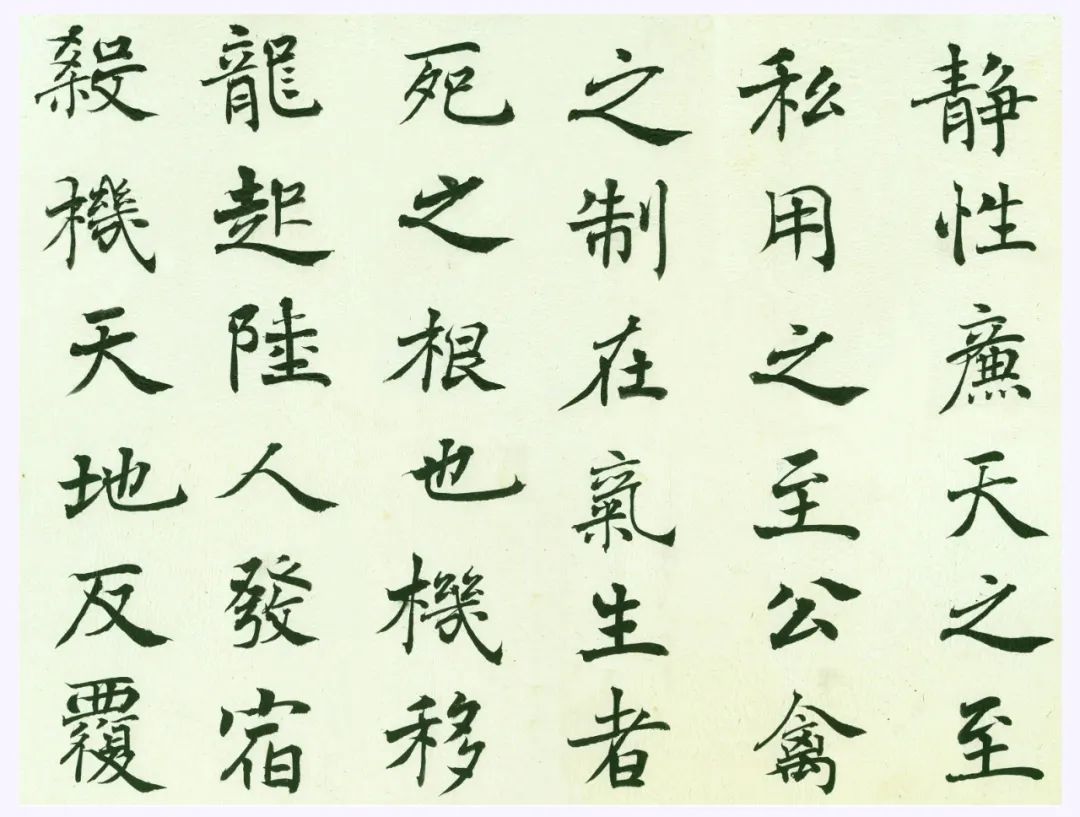 静性廉天之至
私用之至公禽
之制在氣生者
死之根也機移
龍起陸人發宿
殺機天地反覆